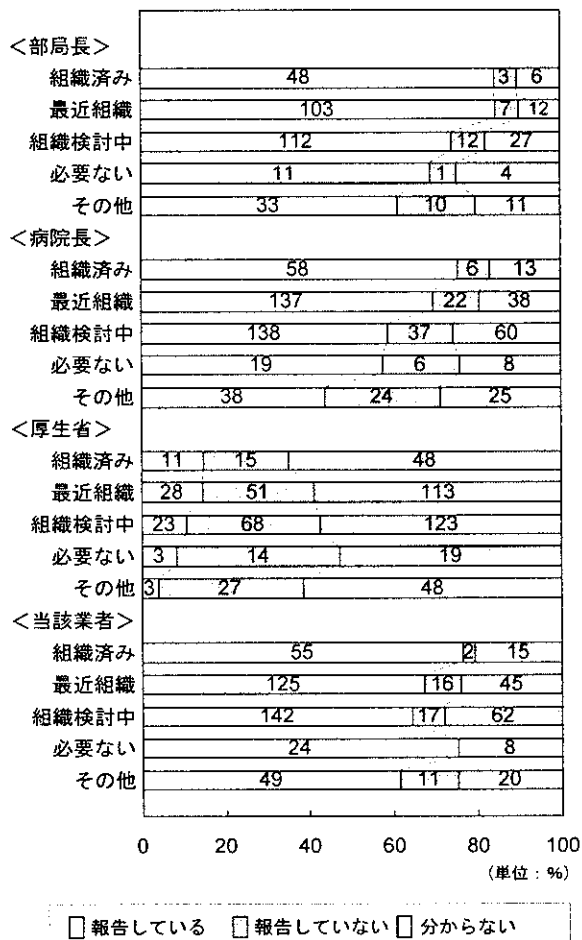 ＜部局長＞
組織済み 48 3 6
最近組織 103 7 12
組織検討中 112 12 27
必要ない 11 1 4
その他 33 10 11
＜病院長＞
組織済み 58 6 13
最近組織 137 22 38
組織検討中 138 37 60
必要ない 19 6 8
その他 38 24 25
＜厚生省＞
組織済み 11 15 48
最近組織 28 51 113
組織検討中 23 68 123
必要ない 3 14 19
その他 3 27 48
＜当該業者＞
組織済み 55 2 15
最近組織 125 16 45
組織検討中 142 17 62
必要ない 24 8
その他 49 11 20
0 20 40 60 80 100
(単位：%)
報告している 報告していない 分からない